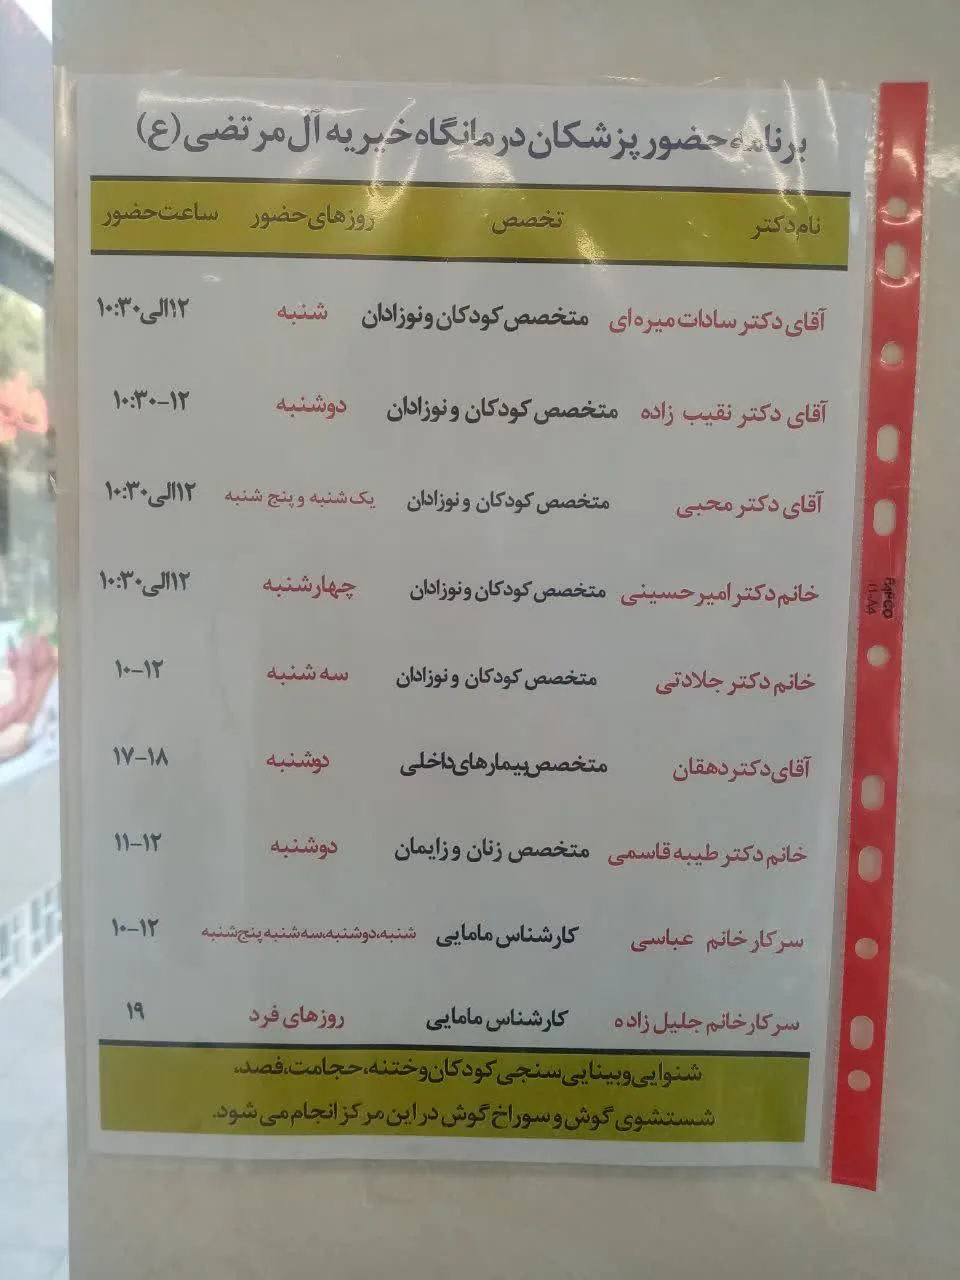 برنامه حضور پزشکان درمانگاه خیریه آل مرتضی (ع)
نام دکتر تخصص روزهای حضور ساعت حضور
آقای دکتر سادات میره ای متخصص کودکان و نوزادان شنبه ۱۲الی۱۰:۳۰
آقای دکتر نقیب زاده متخصص کودکان و نوزادان دوشنبه ۱۰:۳۰-۱۲
آقای دکتر محبی متخصص کودکان و نوزادان یک شنبه و پنج شنبه ۱۲الی۱۰:۳۰
خانم دکتر امیرحسینی متخصص کودکان ونوزادان چهارشنبه ۱۲الی۱۰:۳۰
خانم دکتر جلادتی متخصص کودکان و نوزادان سه شنبه ۱۰-۱۲
آقای دکتر دهقان متخصص بیمارهای داخلی دوشنبه ۱۷-۱۸
خانم دکتر طیبه قاسمی متخصص زنان و زایمان دوشنبه ۱۱-۱۲
سرکار خانم عباسی کارشناس مامایی شنبه،دوشنبه،سه شنبه پنج شنبه ۱۰-۱۲
سرکارخانم جلیل زاده کارشناس مامایی روزهای فرد ۱۹
شنوایی و بینایی سنجی کودکان و ختنه، حجامت، فصد،
شستشوی گوش و سوراخ گوش در این مرکز انجام می شود.